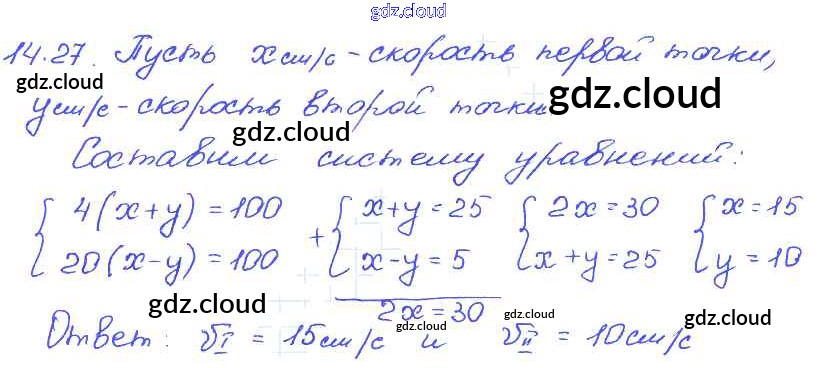 gdz.cloud
14.27. Пусть x см/с - скорость первой точки,
gdz.cloud
y см/с - скорость второй точки gdz.cloud
gdz.cloud
Составим систему уравнений:
{ 4(x+y) = 100 + { x+y = 25 { 2x = 30 { x = 15
{ 20(x-y) = 100 { x-y = 5 { x+y = 25 { y = 10
2x = 30
gdz.cloud gdz.cloud gdz.cloud
Ответ: v_I = 15 см/с и v_II = 10 см/с